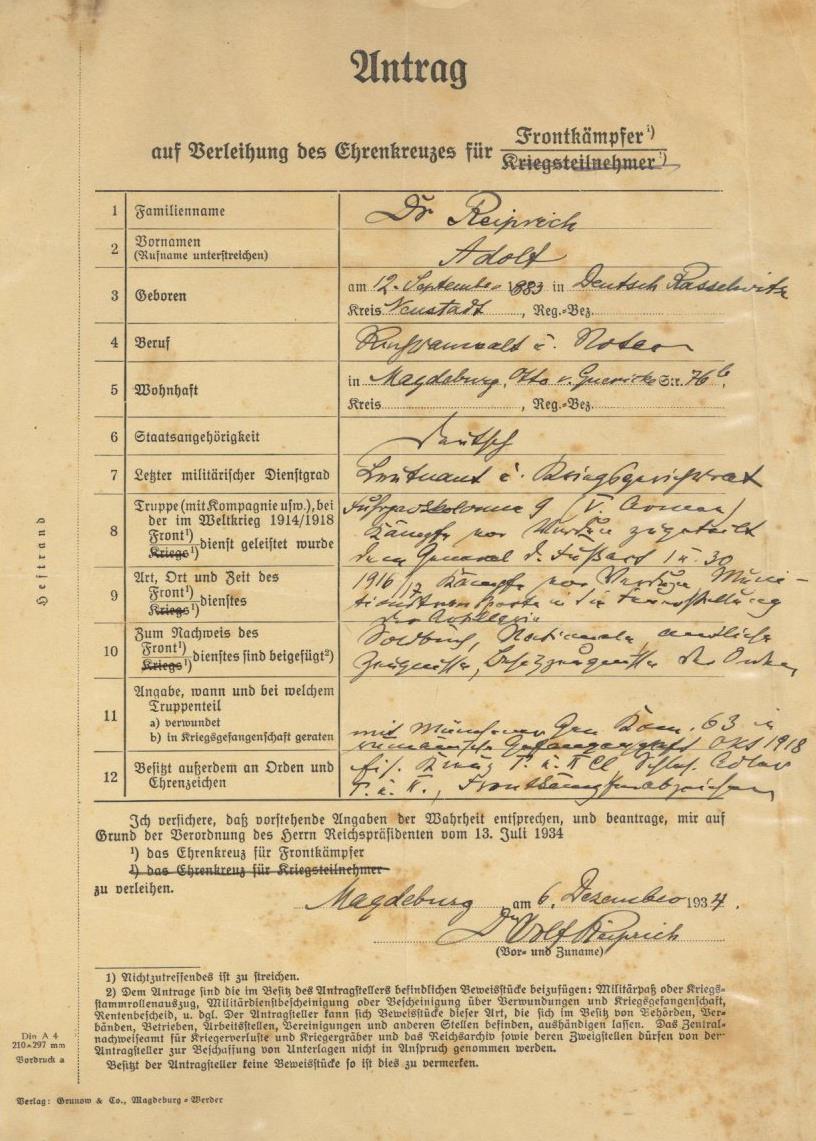 Antrag
auf Verleihung des Ehrenkreuzes für Frontkämpfer¹)
Kriegsteilnehmer¹)
1 Familienname Dr Reiprich
2 Vornamen Adolf
(Rufname unterstreichen)
3 Geboren am 12. September 1883 in Deutsch Rasselwitz
Kreis Neustadt, Reg.-Bez.
4 Beruf Rechtsanwalt u. Notar
5 Wohnhaft in Magdeburg, Otto v. Guericke Str. 76 b,
Kreis, Reg.-Bez.
6 Staatsangehörigkeit Deutsch
7 Letzter militärischer Dienstgrad Leutnant u. Kriegsgerichtsrat
8 Truppe (mit Kompagnie usw.), bei
der im Weltkrieg 1914/1918
Front¹)
Kriegs¹) dienst geleistet wurde
Fuhrparkkolonne 9 (V. Armee)
Kämpfe vor Verdun zugeteilt
dem General d. Fußart 1 u. 30
9 Art, Ort und Zeit des
Front¹)
Kriegs¹) dienstes
1916/17 Kämpfe vor Verdun Muni-
tionstransporte in die Feuerstellung
der Artillerie
10 Zum Nachweis des
Front¹)
Kriegs¹) dienstes sind beigefügt²)
Soldbuch, Nationale, amtliche
Zeugnisse, Besitzzeugnisse der Orden
11 Angabe, wann und bei welchem
Truppenteil
a) verwundet
b) in Kriegsgefangenschaft geraten
mit Gen Kom. 63 in
rumänische Gefangenschaft Okt 1918
12 Besitzt außerdem an Orden und
Ehrenzeichen
Eis. Kreuz I. u. II Cl, Schles. Adler
I. u. II., Frontkämpferabzeichen
Ich versichere, daß vorstehende Angaben der Wahrheit entsprechen, und beantrage, mir auf
Grund der Verordnung des Herrn Reichspräsidenten vom 13. Juli 1934
¹) das Ehrenkreuz für Frontkämpfer
¹) das Ehrenkreuz für Kriegsteilnehmer
zu verleihen.
Magdeburg am 6. Dezember 1934.
Dr Adolf Reiprich
(Vor- und Zuname)
1) Nichtzutreffendes ist zu streichen.
2) Dem Antrage sind die im Besitz des Antragstellers befindlichen Beweisstücke beizufügen: Militärpaß oder Kriegs-
stammrollenauszug, Militärdienstbescheinigung oder Bescheinigung über Verwundungen und Kriegsgefangenschaft,
Rentenbescheid, u. dgl. Der Antragsteller kann sich Beweisstücke dieser Art, die sich im Besitz von Behörden, Ver-
bänden, Betrieben, Arbeitsstellen, Vereinigungen und anderen Stellen befinden, aushändigen lassen. Das Zentral-
nachweiseamt für Kriegerverluste und Kriegergräber und das Reichsarchiv sowie deren Zweigstellen dürfen von der
Antragsteller zur Beschaffung von Unterlagen nicht in Anspruch genommen werden.
Besitzt der Antragsteller keine Beweisstücke so ist dies zu vermerken.
Heftrand
Din A 4
210×297 mm
Vordruck a
Verlag: Grunow & Co., Magdeburg-Werder